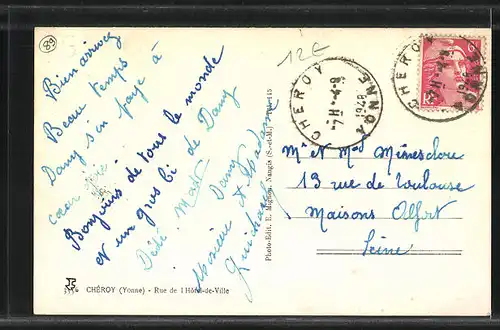 89
12€
Bien arrivés
Beau temps
Dany s'en paye à
cœur joie
Bonjours de tous le monde
et un gros bi de Dany
Dédé Mado
Monsieur Dany
et Madame
CHÉROY (Yonne) - Rue de l'Hôtel-de-Ville
Photo-Edit. E. Mignon, Nangis (S.-et-M.)
CHEROY
YONNE
CHEROY
YONNE
RF
Mr et Md
13 rue de Toulouse
Maisons Alfort
Seine